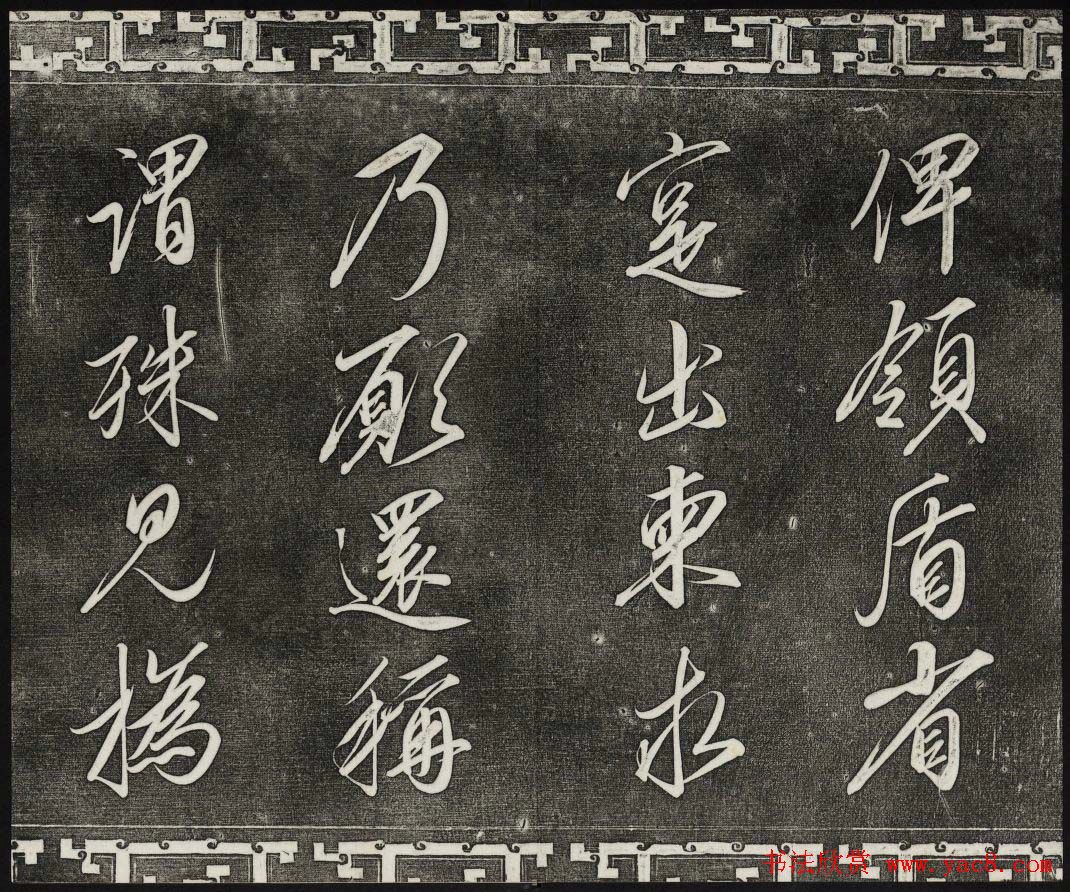 俾領盾省
寔出東
乃還稱
謂殊見撝
书法欣赏 www.yac8.com